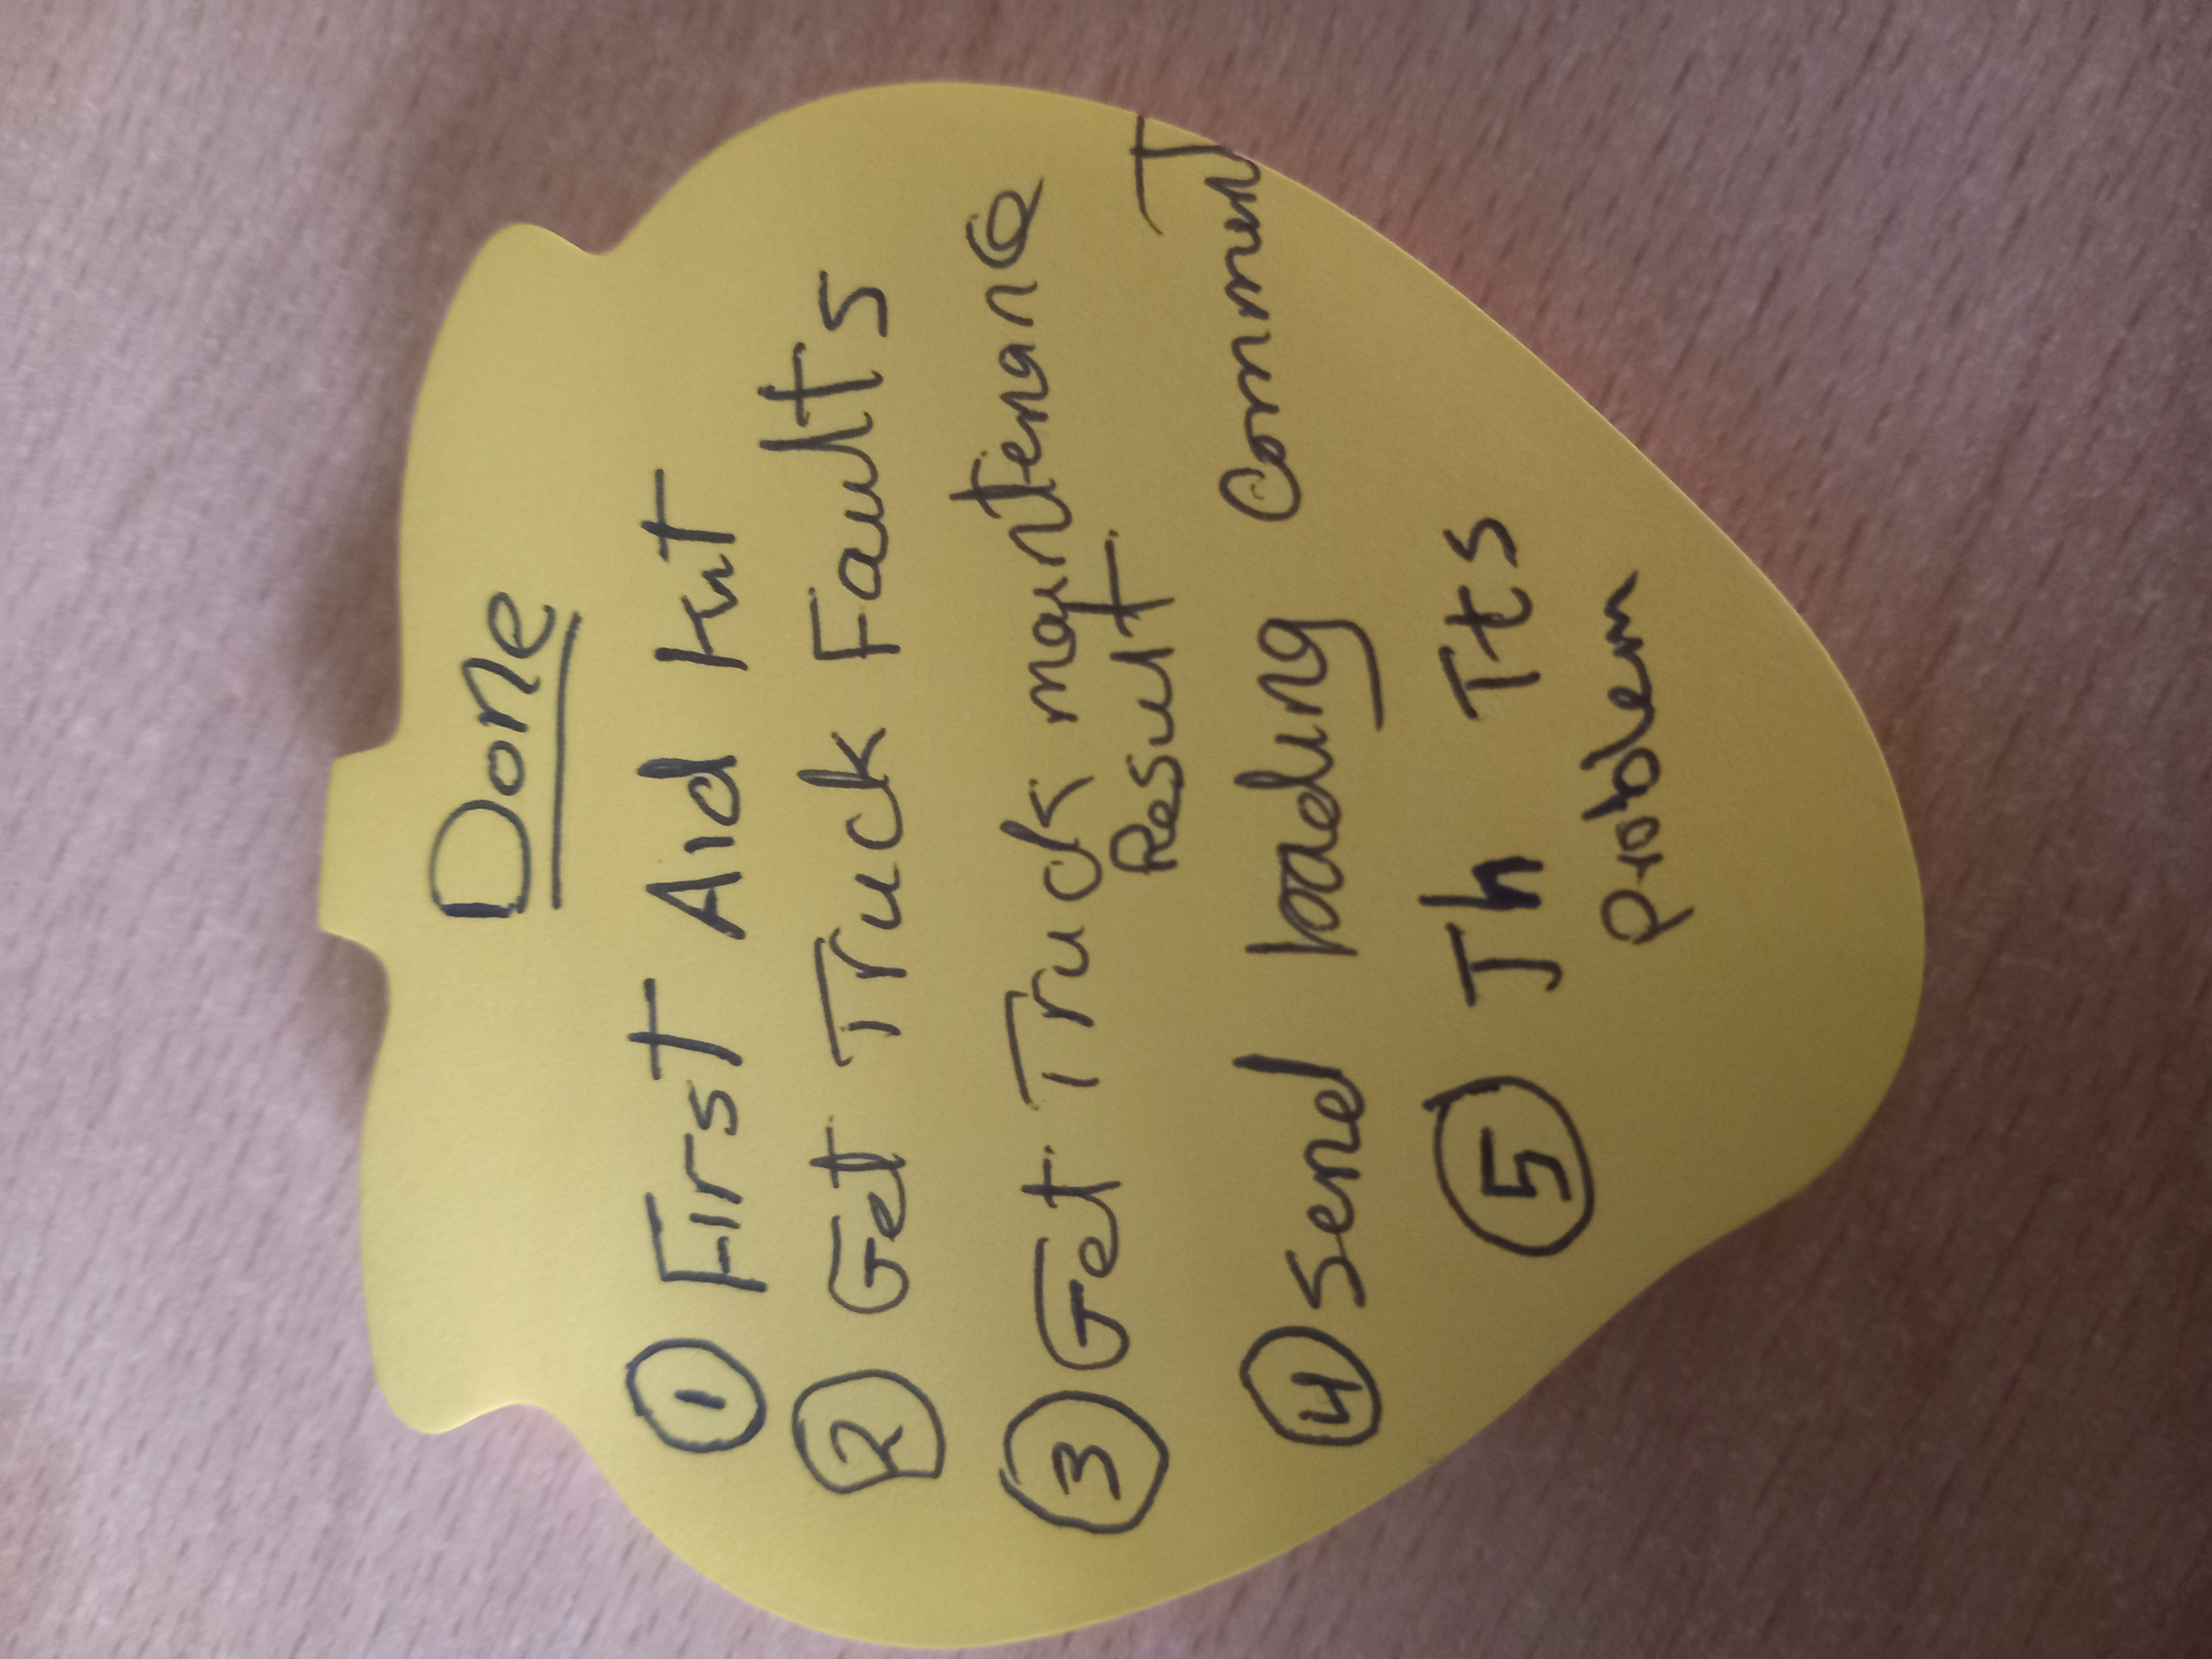 Done
1 First Aid Kit
2 Get Truck Faults
3 Get Truck maintenance
Result
4 Send loading Comment
5 Jh Tts
Problem